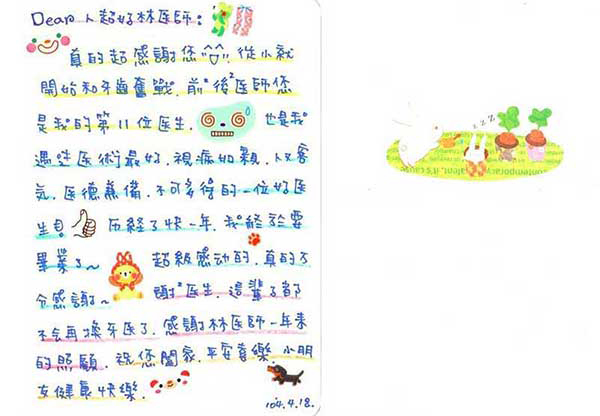 Dear 人超好林医師:
真的超感謝您^∪^!!, 從小就
開始和牙齒奮戰, 前前後後医師您
是我的第11位医生, 也是我
遇过医術最好, 視病如親, 人又客
氣, 医德兼備, 不可多得的一位好医
生! 历経了快一年, 我終於要
畢業了~ 超級感动的, 真的万
分感謝~ 謝謝医生, 這輩子都
不会再換牙医了, 感謝林医師一年来
的照顧, 祝您闔家, 平安喜樂, 小朋
友健康快樂.
104.4.18.
zzz
contemporary
talent, it's cause